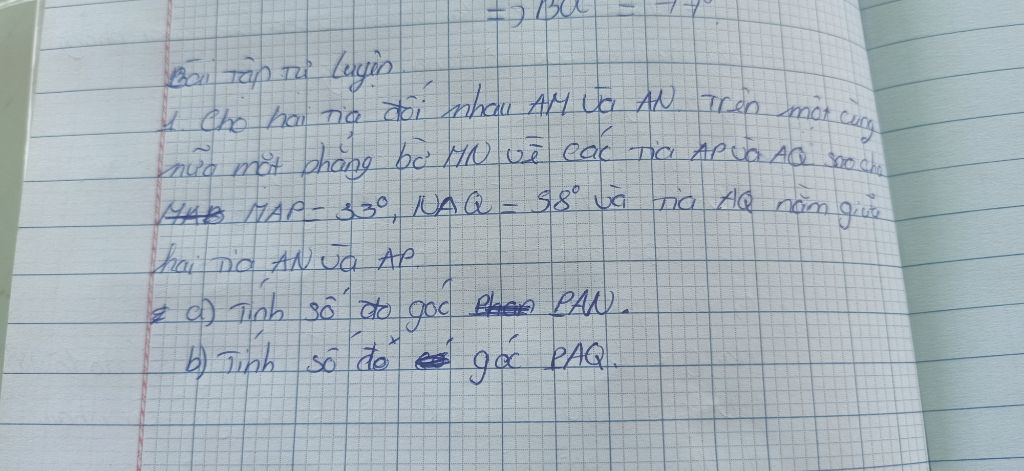 Bài Tập Tự luyện
1. Cho hai Tia đối nhau AM và AN Trên một cùng
nửa mặt phẳng bờ MN vẽ các Tia AP và AQ sao cho
MAP = 33°, NAQ = 58° và Tia AQ nằm giữa
hai Tia AN và AP.
a) Tính số đo góc PAN.
b) Tính số đo góc PAQ.